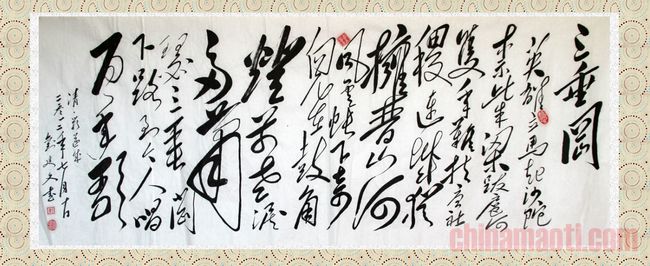 三垂岡
英雄立馬起沙陀
奈此朱梁跋扈何
隻手難扶唐社
稷連城猶
擁晉山河
風雲帳下奇
兒在鼓角
燈前老淚
多蕭
瑟三垂岡
下路至今人唱
百年歌
清嚴遂成
二〇一二年七月十日
chinamanti.com